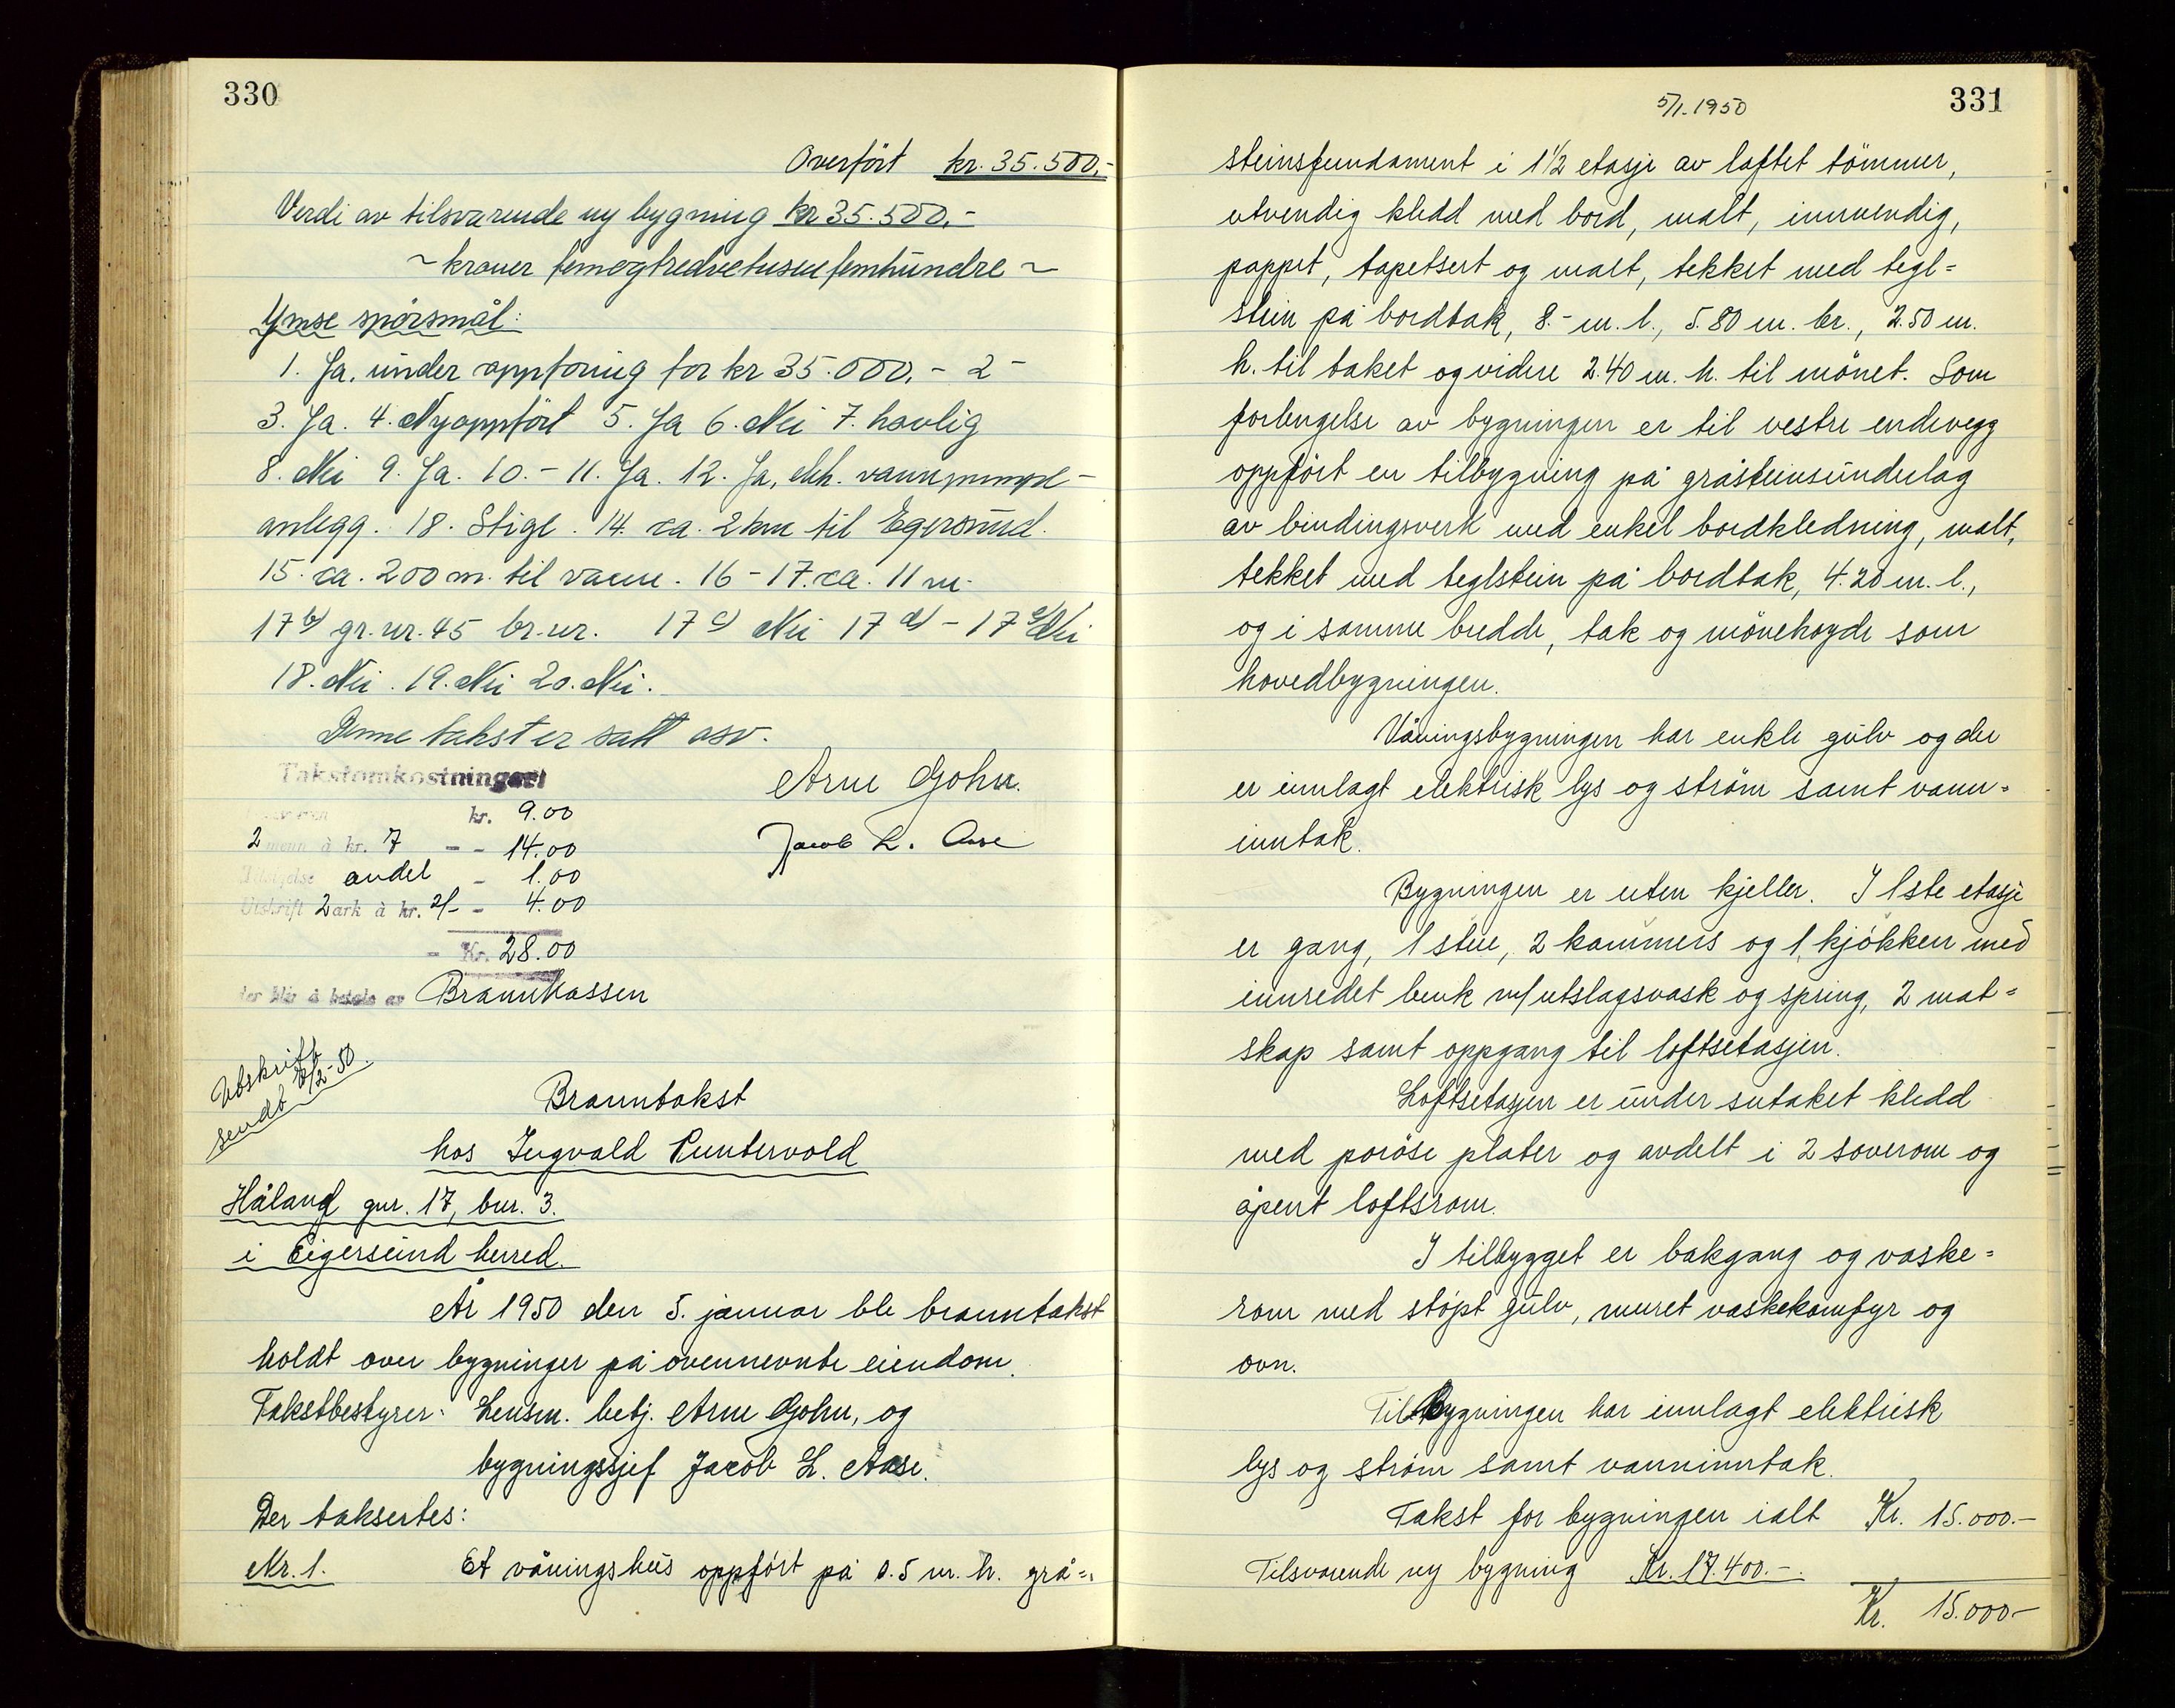 330
Overført kr. 35.500,-
Verdi av tilsvarende ny bygning kr 35.500,-
~ kroner femogtredvetusenfemhundrede ~
Ymse spørsmål:
1. Ja, under oppføring for kr 35.000,- 2 -
3. Ja. 4. Nyoppført 5. Ja 6. Nei 7. havlig
8. Nei 9. Ja. 10. - 11. Ja. 12. Ja, elek. vannpumpe-
anlegg. 13. Stige. 14. ca. 2 km til Egersund.
15. ca. 200 m. til vann. 16 - 17. ca. 11 m.
17 b) gr.nr. 45 br.nr. 17 c) Nei 17 d) - 17 e) Nei
18. Nei. 19. Nei 20. Nei.
Denne takst er satt osv.
Takstomkostninger:
kr. 9.00
2 menn à kr. 7 - - 14.00
andel - 1.00
Utskrift 2 ark à kr. 2/- - 4.00
- Kr. 28.00
der blir å betale av Brannkassen
Arne Gohn.
Jacob L. Aase
Utskrift
sendt 8/2-50.
Branntakst
hos Ingvald Puntervold
Håland gnr. 17, bnr. 3.
i Eigersund herred.
År 1950 den 5. januar ble branntakst
holdt over bygninger på ovennevnte eiendom.
Takstbestyrer: Lensm. betj. Arne Gohn, og
bygningssjef Jacob L. Aase.
Der taksertes:
Nr. 1. Et våningshus oppført på 0.5 m. h. grå=
5/1-1950
331
steinsfundament i 1 1/2 etasje av laftet tømmer,
utvendig kledd med bord, malt, innvendig,
pappet, tapetsert og malt, tekket med tegl=
stein på bordtak, 8.- m. l., 5.80 m. br., 2.50 m.
h. til taket og videre 2.40 m. h. til mønet. Som
forlengelse av bygningen er til vestre endevegg
oppført en tilbygning på gråsteinsunderlag
av bindingsverk med enkel bordkledning, malt,
tekket med teglstein på bordtak, 4.20 m. l.,
og i samme bredde, tak og mønehøyde som
hovedbygningen.
Våningsbygningen har enkle gulv og der
er innlagt elektrisk lys og strøm samt vann=
inntak.
Bygningen er uten kjeller. I 1ste etasje
er gang, 1 stue, 2 kammers og 1 kjøkken med
innredet benk m/utslagsvask og spring, 2 mat=
skap samt oppgang til loftsetasjen.
Loftsetasjen er under sutaket kledd
med porøse plater og avdelt i 2 soverom og
åpent loftsrom.
I tilbygget er bakgang og vaske=
rom med støpt gulv, muret vaskekomfyr og
ovn.
Tilbygningen har innlagt elektrisk
lys og strøm samt vanninntak.
Takst for bygningen ialt Kr. 15.000.-
Tilsvarende ny bygning Kr. 17.400.-.
Kr. 15.000-